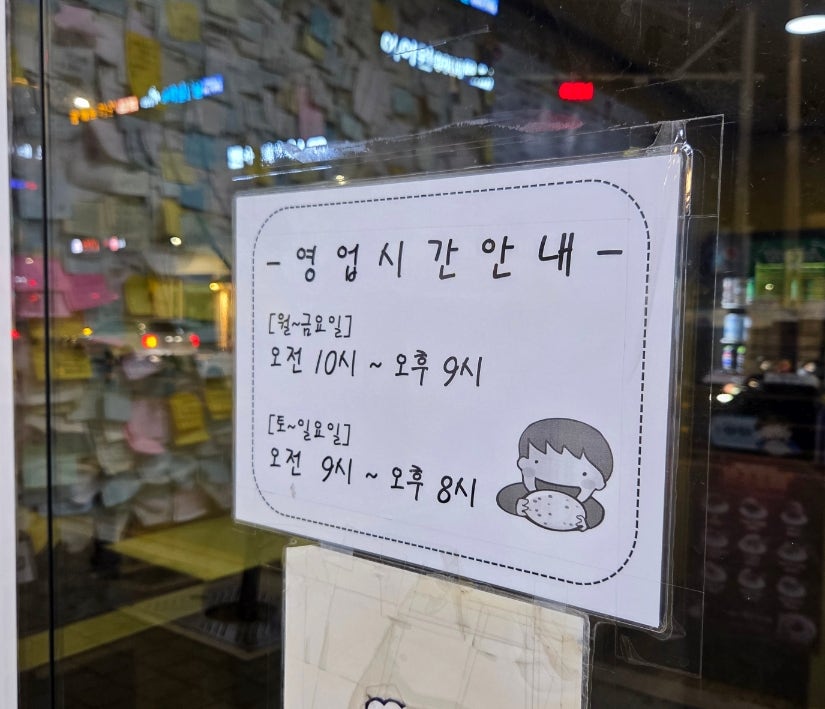 - 영업시간안내 -
[월~금요일]
오전 10시 ~ 오후 9시
[토~일요일]
오전 9시 ~ 오후 8시